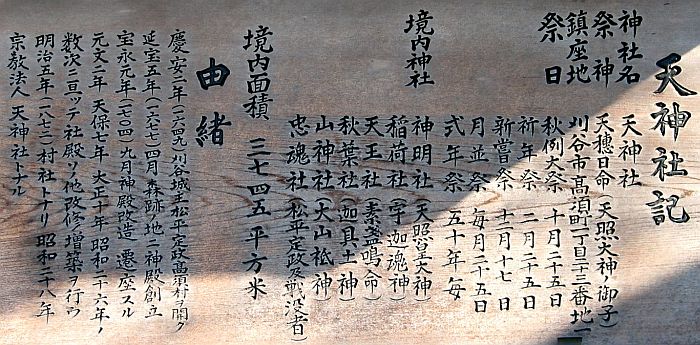 天神社記
神社名 天神社
祭神 天穂日命(天照大神ノ御子)
鎮座地 刈谷市高須町一丁目三十三番地一
祭日 秋例大祭 十月二十五日
祈年祭 二月二十五日
新嘗祭 十二月十七日
月並祭 毎月二十五日
式年祭 五十年毎
境内神社 神明社(天照皇大神)
稲荷社(宇迦魂神)
天王社(素盞鳴命)
秋葉社(迦具土神)
山神社(大山祇神)
忠魂社(松平定政及戦没者)
境内面積 三七四五平方米
由緒
慶安二年(一六四九)刈谷城主松平定政高須村ヲ開ク
延宝五年(一六七七)四月森跡地ニ神殿創立
宝永元年(一七〇四)九月神殿改造遷座スル
元文二年 天保七年 大正十年 昭和二十六年ノ
数次ニ亘ッテ社殿ソノ他改修増築ヲ行ウ
明治五年(一八七二)村社トナリ 昭和二十八年
宗教法人 天神社トナル